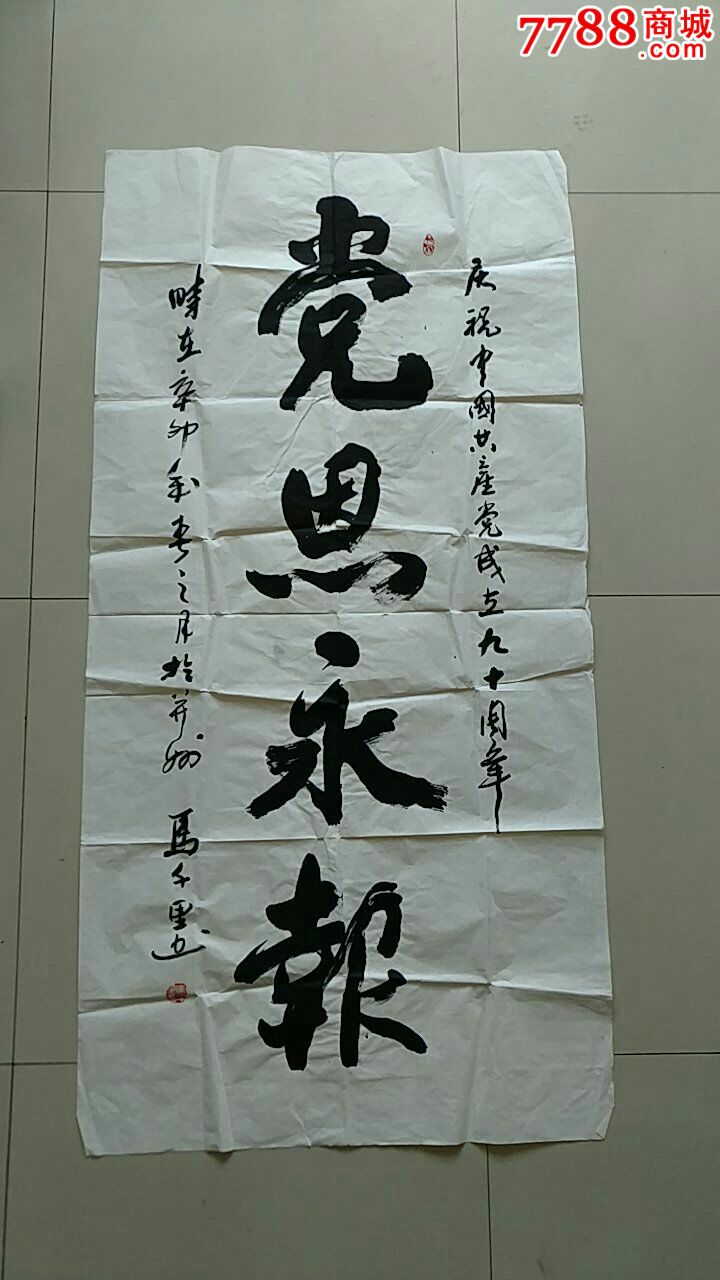 7788商城
.com
庆祝中國共產党成立九十周年
党恩永報
時在辛卯年春之月於并州 馬千里书